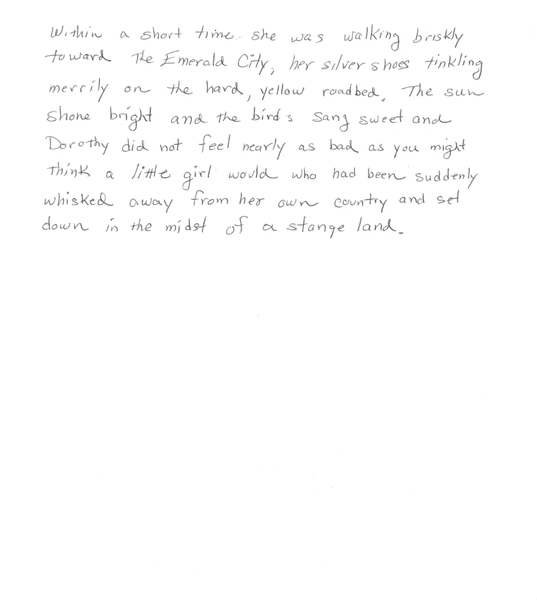 Within a short time she was walking briskly
toward The Emerald City, her silver shoes tinkling
merrily on the hard, yellow roadbed. The sun
shone bright and the birds sang sweet and
Dorothy did not feel nearly as bad as you might
think a little girl would who had been suddenly
whisked away from her own country and set
down in the midst of a stange land.